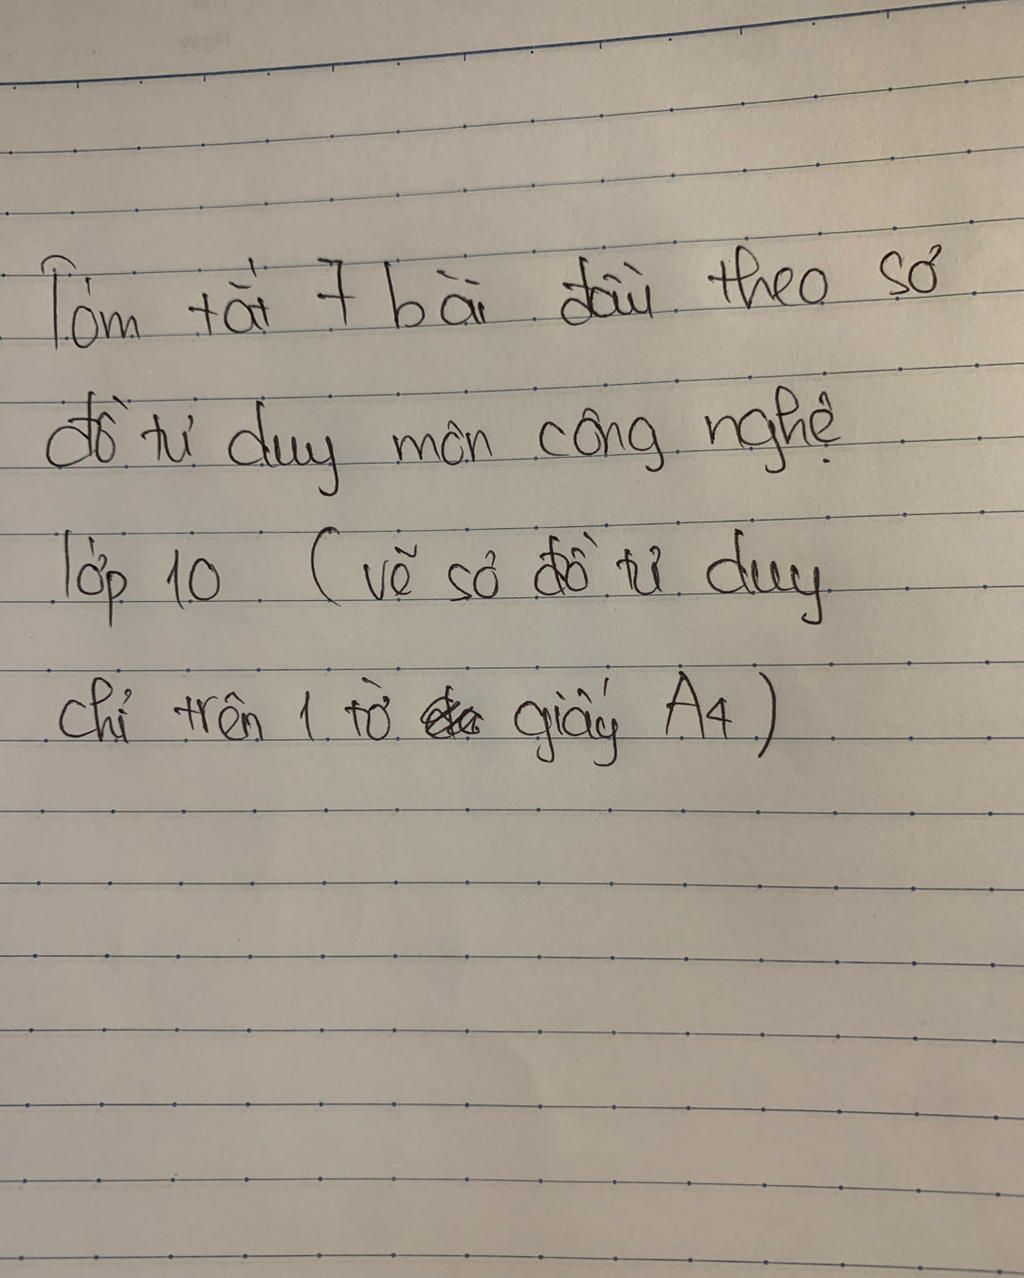 Tóm tắt 7 bài đầu theo sơ
đồ tư duy môn công nghệ
lớp 10 (vẽ sơ đồ tư duy
chỉ trên 1 tờ giấy A4)